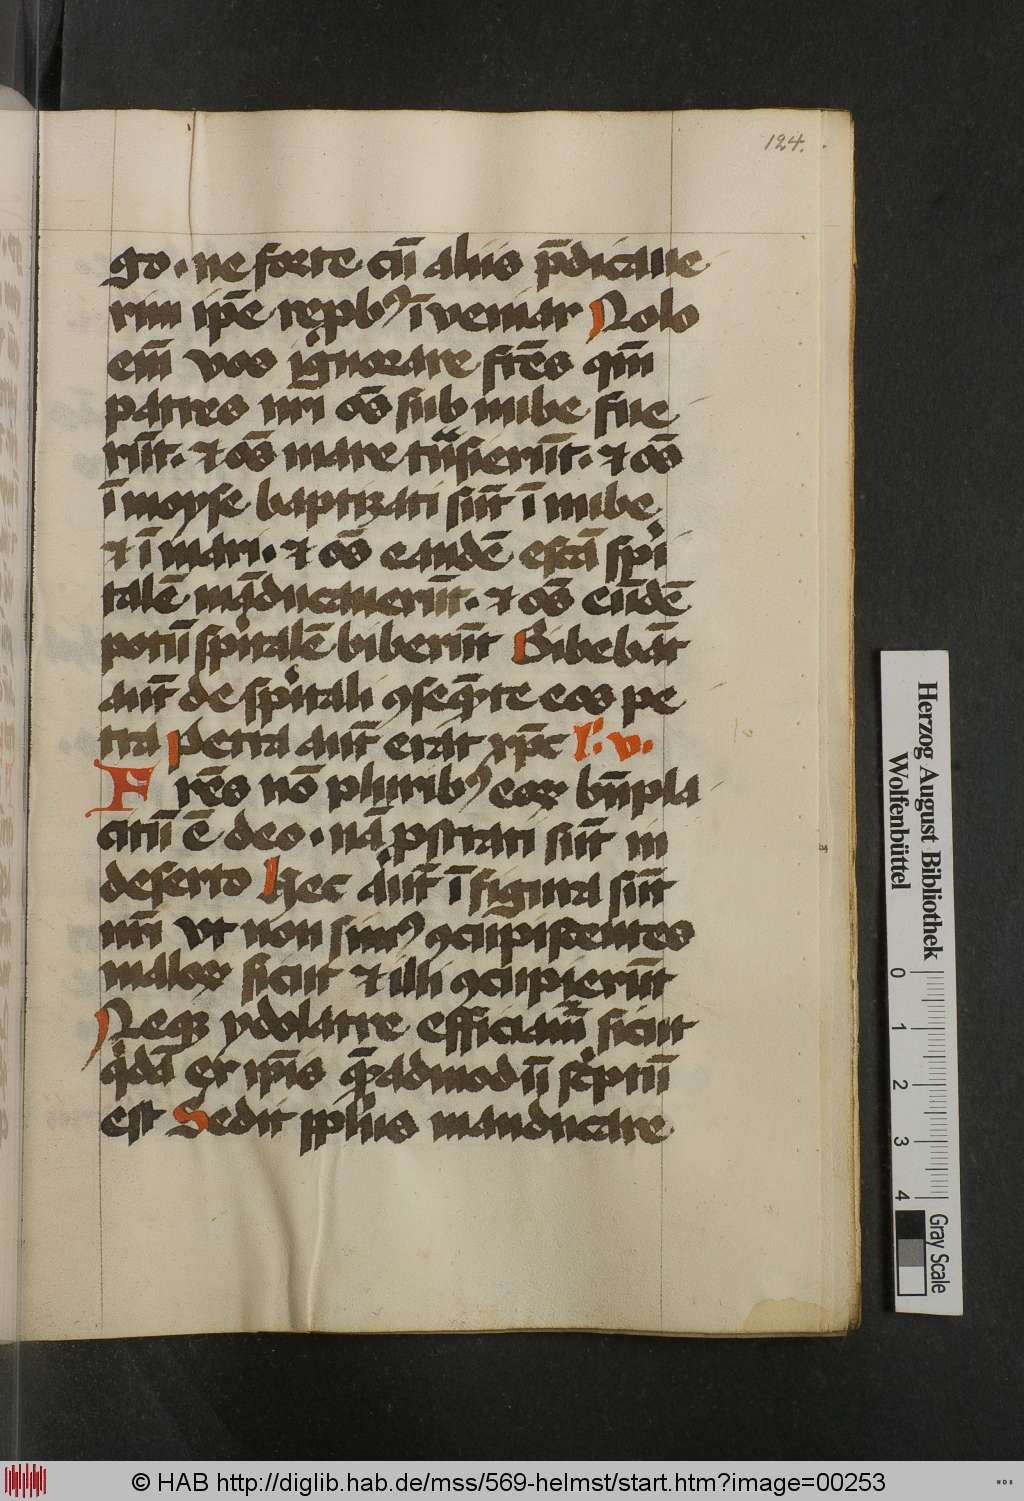 124.
go · ne forte cū aliis p̄dicaue
rim ip̄e rep̲bꝰ īueniar Nolo
em̄ vos ignorare frēs qm̄
patres nr̄i om̄s sub nube fue
rūt · et om̄s mare trͣsierūt · et om̄s
ī moyse baptizati sūt ī nube
et ī mari · et om̄s eandē escā spi
talē mād̄ucauerūt · et om̄s eūdē
potū spitalē biberūt Bibebāt
aūt de spitali ꝯseq̄nte eos pe
tra Petra aūt erāt xp̄c l'. v.
Frēs nō pluribꝰ eoꝝ bn̄pla
citū ē deo · nā ꝓstrati sūt in
deserto Hec aūt ī figura sūt
nr̄i vt non simꝰ ꝯcupiscentes
maloꝝ sicut et illi ꝯcupierūt
Neqꝫ ydolatre efficiam̄ sicut
qͥdā ex ip̄is q̄admodū sc̄ptū
est Sedit pplūs manducare
Herzog August Bibliothek
Wolfenbüttel
0 1 2 3 4
Gray Scale
© HAB http://diglib.hab.de/mss/569-helmst/start.htm?image=00253